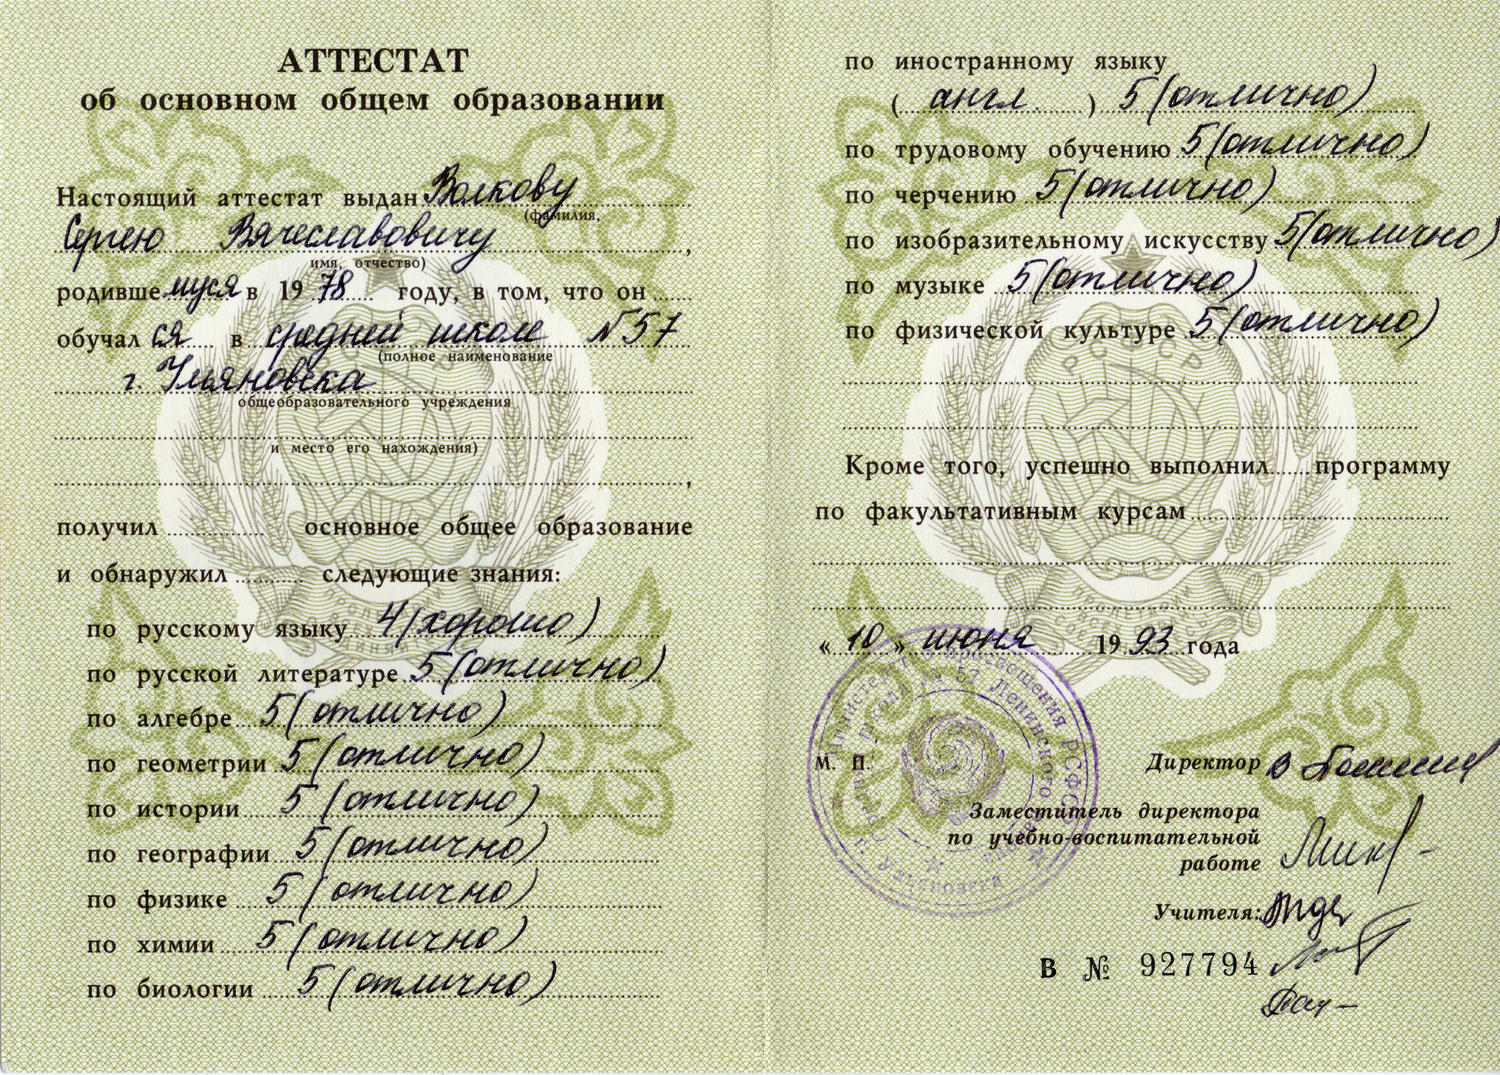 АТТЕСТАТ
об основном общем образовании
Настоящий аттестат выдан Волкову
(фамилия,
Сергею Вячеславовичу,
имя, отчество)
родившемуся в 1978 году, в том, что он
обучался в средней школе № 57
(полное наименование
г. Ульяновска
общеобразовательного учреждения
и место его нахождения)
,
получил основное общее образование
и обнаружил следующие знания:
по русскому языку 4 (хорошо)
по русской литературе 5 (отлично)
по алгебре 5 (отлично)
по геометрии 5 (отлично)
по истории 5 (отлично)
по географии 5 (отлично)
по физике 5 (отлично)
по химии 5 (отлично)
по биологии 5 (отлично)
по иностранному языку
( англ. ) 5 (отлично)
по трудовому обучению 5 (отлично)
по черчению 5 (отлично)
по изобразительному искусству 5 (отлично)
по музыке 5 (отлично)
по физической культуре 5 (отлично)
Кроме того, успешно выполнил программу
по факультативным курсам
« 10 » июня 1993 года
Министерство просвещения РСФСР
школа № 57 Ленинского
г. Ульяновска
М. П.
Директор
Заместитель директора
по учебно-воспитательной
работе
Учителя:
В № 927794